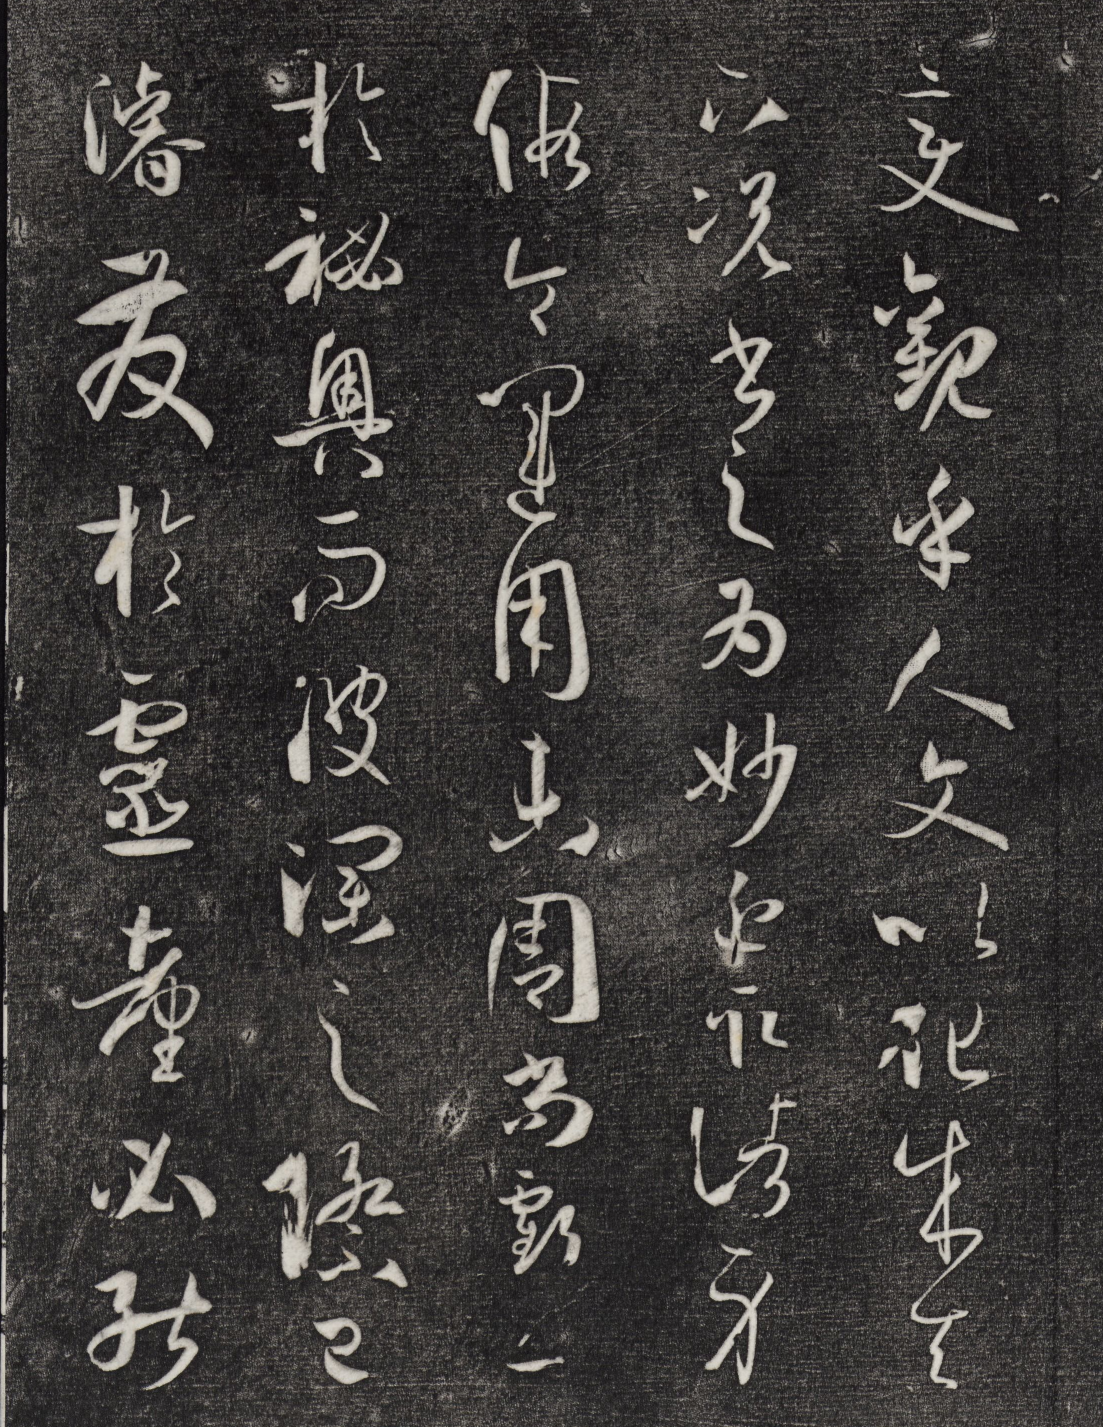 變觀乎人文以化成天
下況書之為妙近取諸身
假令運用未周尚虧工
於秘奧而波瀾之際已
濬發於靈臺必能